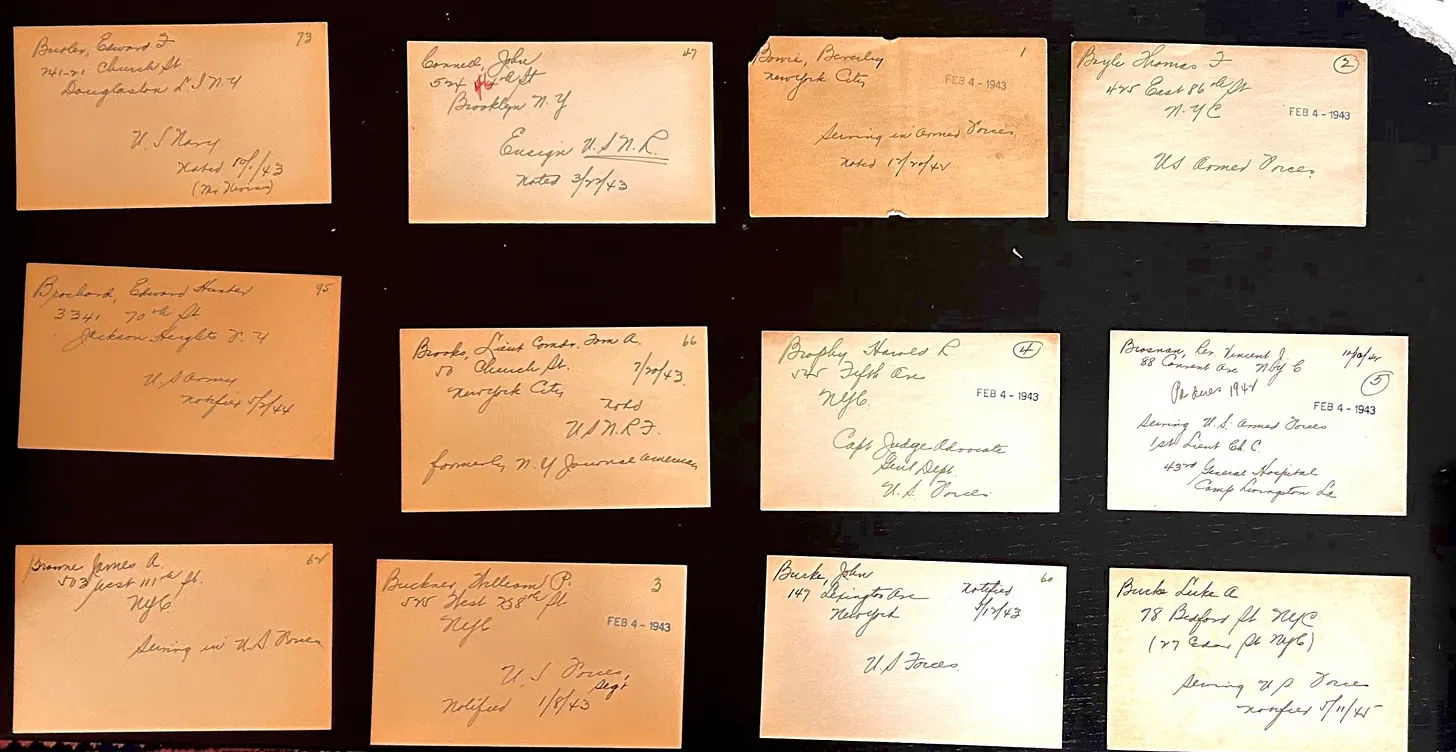 Butler, Edward F 73
241-21 Church St
Douglaston L.I N.Y
U.S Navy
Noted 10/1/43
Connell, John 47
524 46th St
Brooklyn N.Y
Ensign U.S.N.R.
Noted 3/22/43
Bowie, Beverley 1
New York City
FEB 4 - 1943
Serving in Armed Forces
Noted 12/20/42
Boyle Thomas F 2
425 East 86th St
N.Y.C
FEB 4 - 1943
US Armed Forces
Brochard, Edward Hunter 95
3341 70th St.
Jackson Heights N.Y
U S Army
notified 5/2/44
Brooks, Lieut Comdr. Tom A. 66
50 Church St. 7/20/43
New York City
Noted
U.S.N.R.F.
formerly N.Y Journal American
Brophy Harold R 4
545 Fifth Ave
NYC.
FEB 4 - 1943
Capt Judge Advocate
Genl Dept.
U.S. Forces.
Brosnan, Rev. Vincent J.
88 Convent Ave NYC
5
Pd dues 1942
FEB 4 - 1943
Serving U.S. Armed Forces
1st Lieut Ch. C.
43rd General Hospital
Camp Livingston La
Browne James A. 62
503 West 111th St.
NYC
Serving in U.S Forces
Buckner, William P. 3
525 West 238th St
NYC
FEB 4 - 1943
U.S Forces,
Segt
Notified 1/8/43
Burke, John 60
147 Lexington Ave Notified
New York 5/17/43
U.S Forces.
Burke Luke A
78 Bedford St NYC
(27 Cedar St NYC)
Serving U S Forces
notified 5/11/45